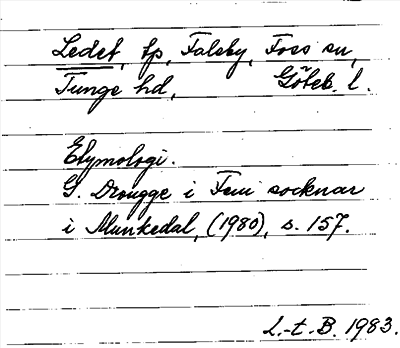 Ledet, tp, Faleby, Foss sn,
Tunge hd, Göteb. l.
Etymologi.
G. Drougge i Fem socknar
i Munkedal, (1980), s. 157.
L.-t. B. 1983.